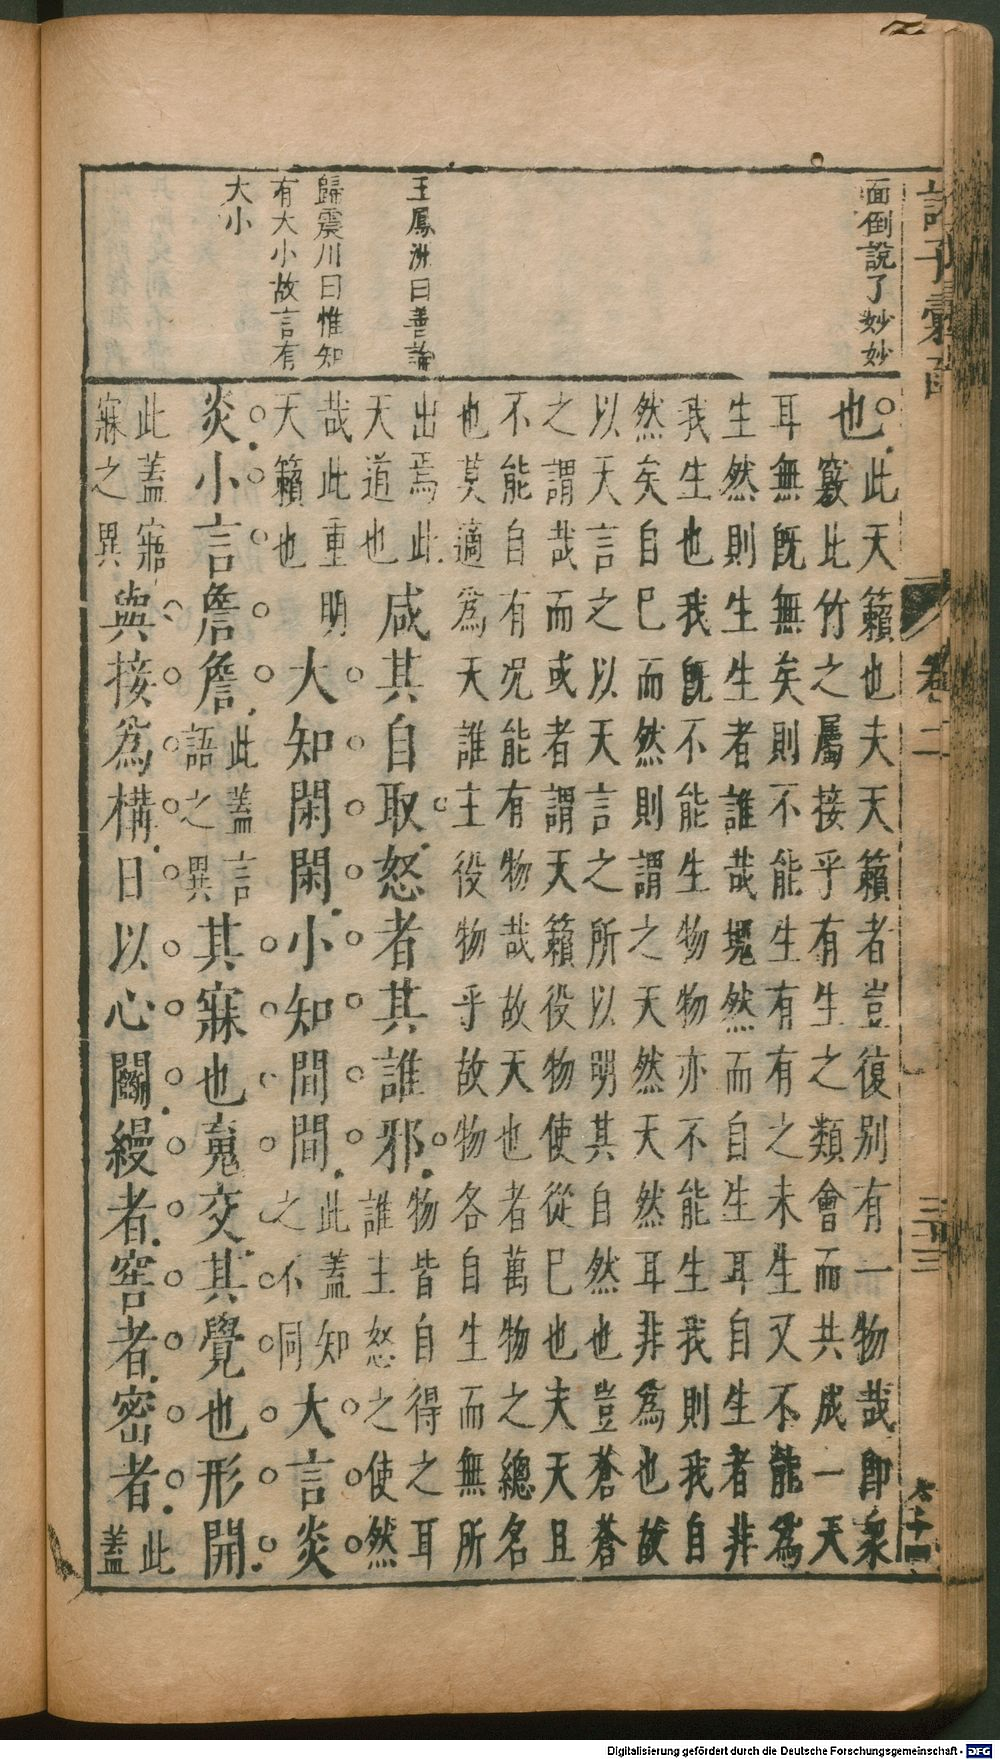 諸子彙函
卷二
面倒說了妙妙
王鳳洲曰善論
歸震川曰惟知
有大小故言有
大小
也
此天籟也夫天籟者豈復別有一物哉即衆
竅比竹之屬接乎有生之類會而共成一天
耳無既無矣則不能生有有之未生又不能爲
生然則生生者誰哉塊然而自生耳自生者非
我生也我既不能生物物亦不能生我則我自
然矣自已而然則謂之天然天然耳非爲也故
以天言之以天言之所以明其自然也豈蒼蒼
之謂哉而或者謂天籟役物使從已也夫天且
不能自有况能有物哉故天也者萬物之總名
也莫適爲天誰主役物乎故物各自生而無所
出焉此
天道也
咸其自取怒者其誰邪
物皆自得之耳
誰主怒之使然
哉此重明
天籟也
大知閑閑小知間間
此蓋知
之不同
大言炎
炎小言詹詹
此蓋言
語之異
其寐也䰟交其覺也形開
此蓋寤
寐之異
與接爲構日以心鬭縵者窖者密者
此
蓋
Digitalisierung gefördert durch die Deutsche Forschungsgemeinschaft - DFG